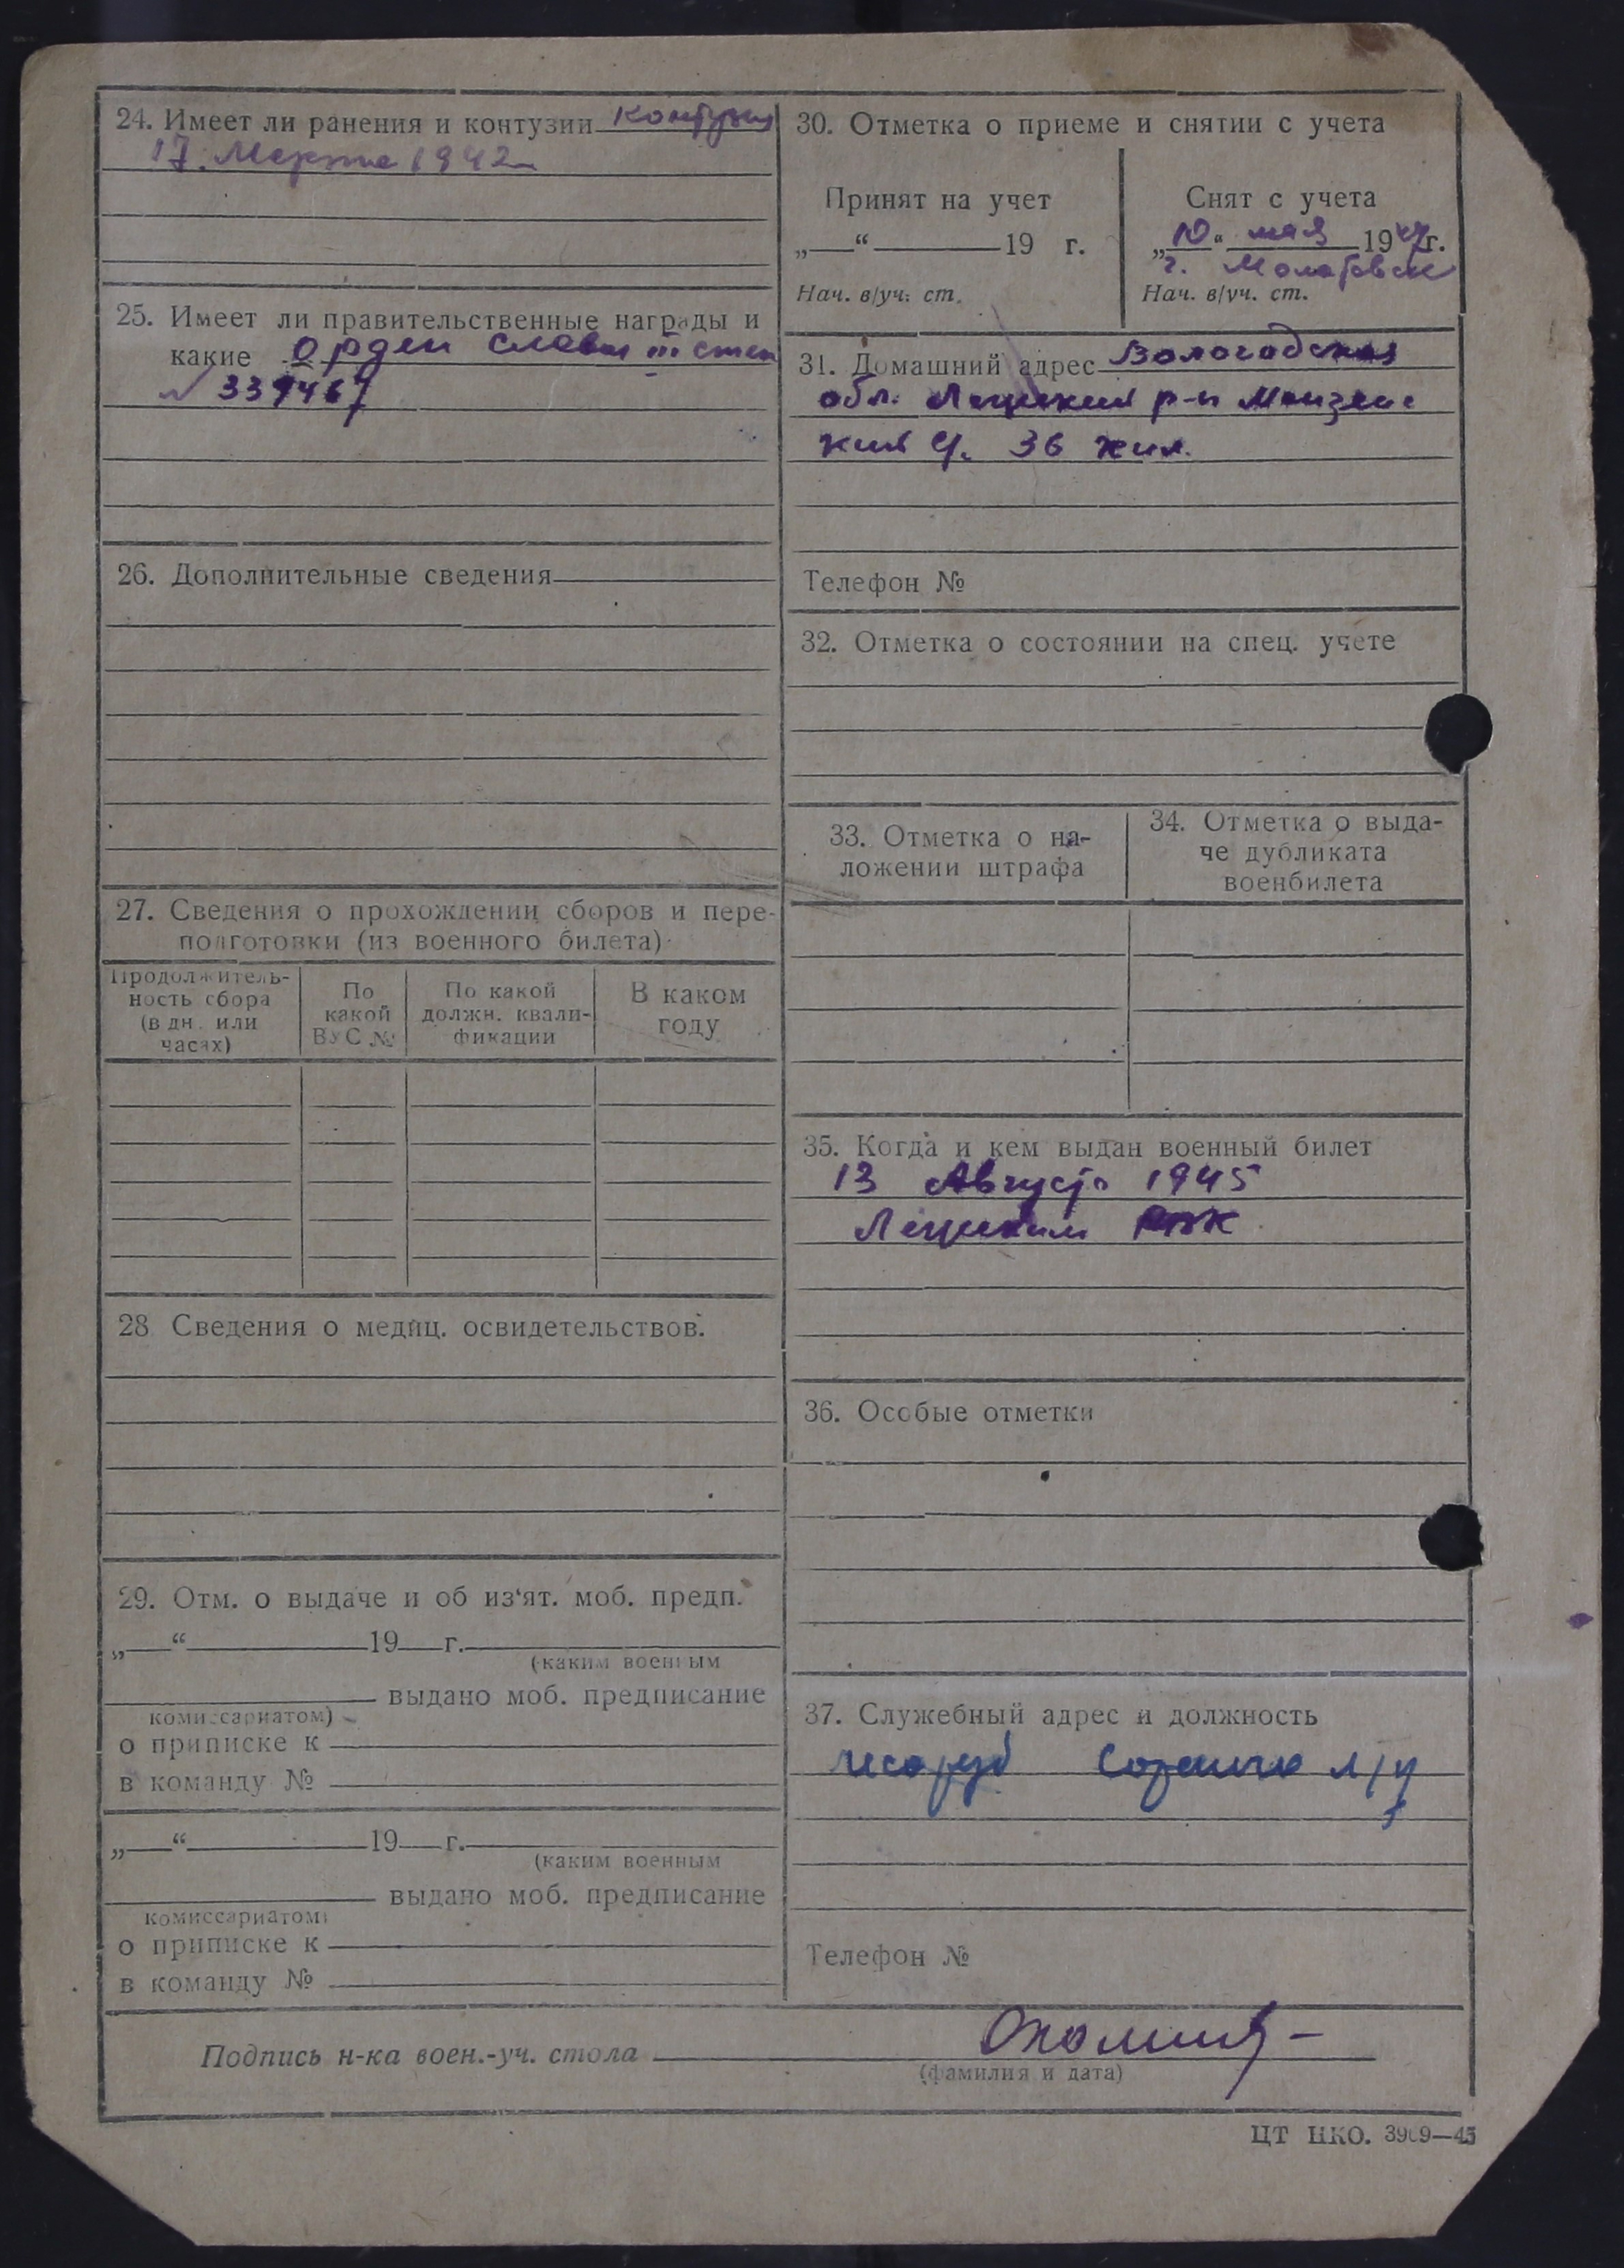 24. Имеет ли ранения и контузии контузия
17. Марта 1942
25. Имеет ли правительственные награды и
какие Орден Славы III степ
№ 339467
26. Дополнительные сведения
27. Сведения о прохождении сборов и пере-
подготовки (из военного билета)
Продолжитель-
ность сбора
(в дн. или
часах)
По
какой
ВУС №
По какой
должн. квали-
фикации
В каком
году
28 Сведения о медиц. освидетельствов.
29. Отм. о выдаче и об из‘ят. моб. предп.
„ “ 19 г.
(каким военным
выдано моб. предписание
комиссариатом)
о приписке к
в команду №
„ “ 19 г.
(каким военным
выдано моб. предписание
комиссариатом)
о приписке к
в команду №
30. Отметка о приеме и снятии с учета
Принят на учет
„ “ 19 г.
Нач. в/уч. ст.
Снят с учета
„10“ мая 1947г.
г. Молотовск
Нач. в/уч. ст.
31. Домашний адрес Вологодская
обл. р-н
36 жил.
Телефон №
32. Отметка о состоянии на спец. учете
33. Отметка о на-
ложении штрафа
34. Отметка о выда-
че дубликата
военбилета
35. Когда и кем выдан военный билет
13 Августа 1945
РВК
36. Особые отметки
37. Служебный адрес и должность
лесоруб
Телефон №
Подпись н-ка воен.-уч. стола
(фамилия и дата)
ЦТ НКО. 3909—45